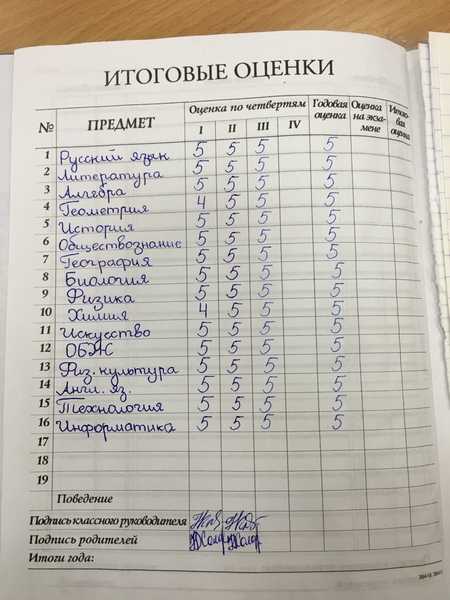 ИТОГОВЫЕ ОЦЕНКИ
№ ПРЕДМЕТ Оценка по четвертям Годовая оценка Оценка на экза-мене Итого-вая оценка
I II III IV
1 Русский язык 5 5 5 5
2 Литература 5 5 5 5
3 Алгебра 5 5 5 5
4 Геометрия 4 5 5 5
5 История 5 5 5 5
6 Обществознание 5 5 5 5
7 География 5 5 5 5
8 Биология 5 5 5 5
9 Физика 5 5 5 5
10 Химия 4 5 5 5
11 Искусство 5 5 5 5
12 ОБЖ 5 5 5 5
13 Физ. культура 5 5 5 5
14 Англ. яз. 5 5 5 5
15 Технология 5 5 5 5
16 Информатика 5 5 5 5
17
18
19
Поведение
Подпись классного руководителя
Подпись родителей
Итоги года: